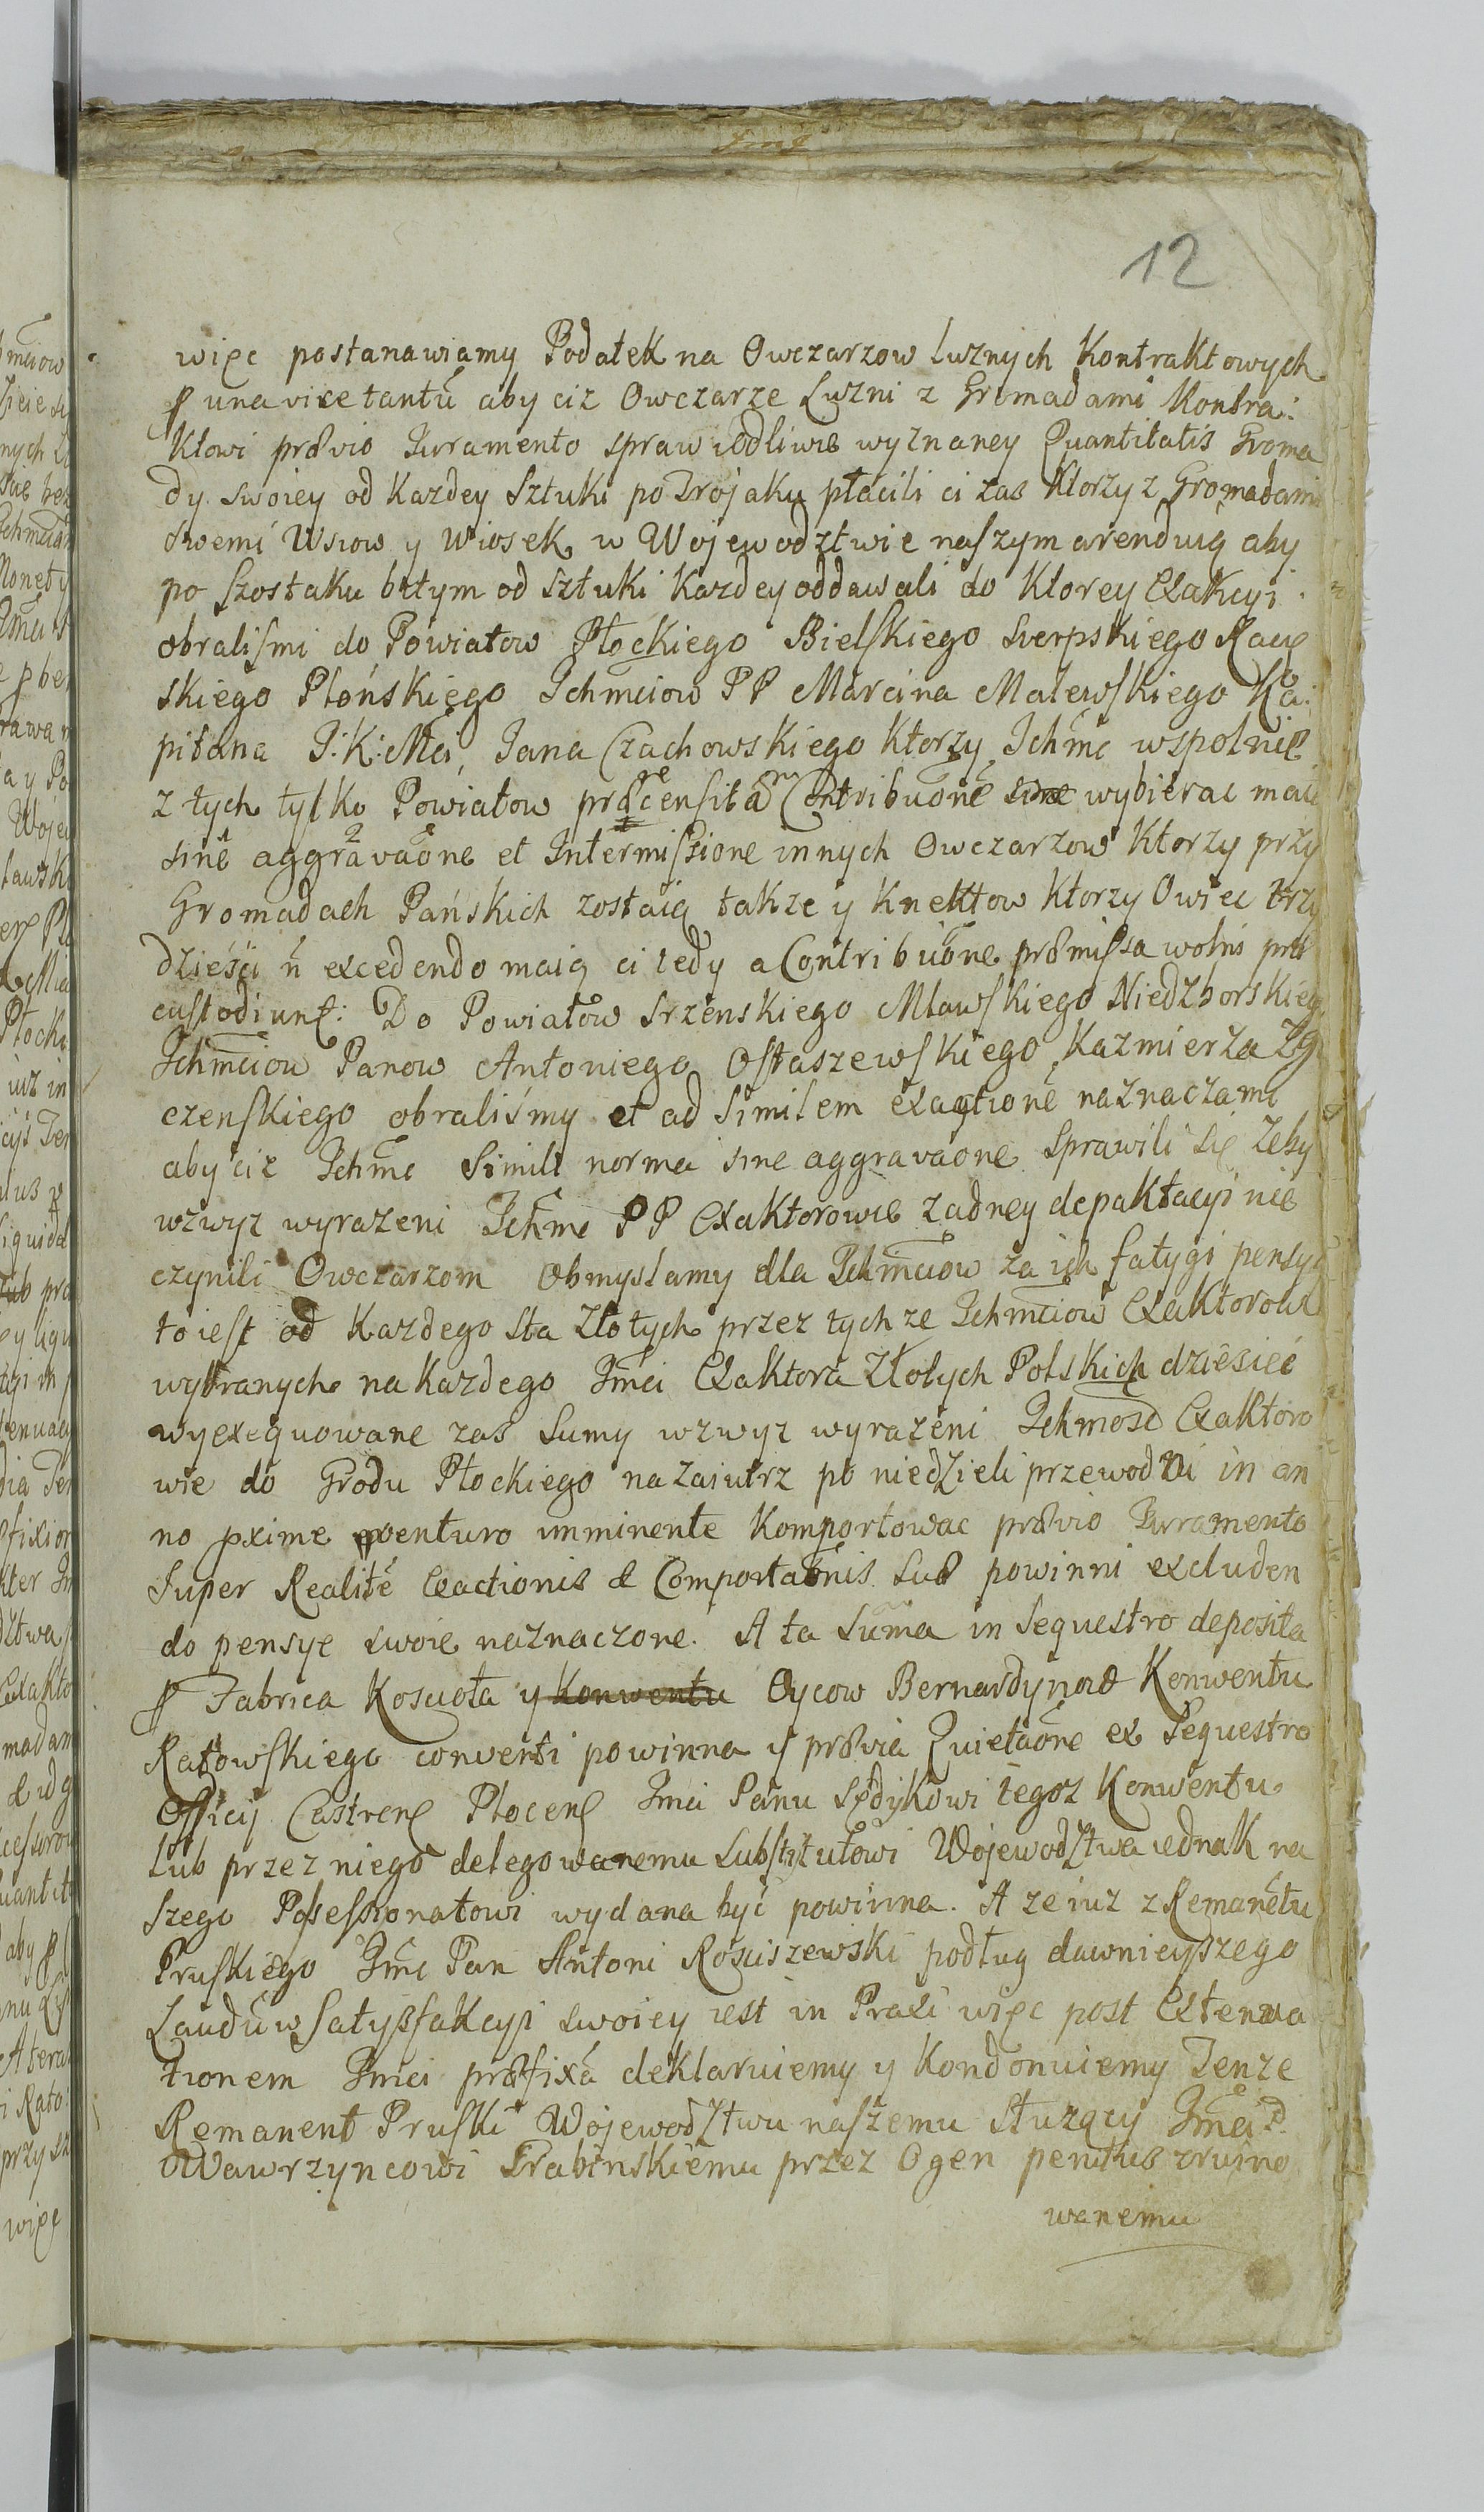 12
więc postanawiamy Podatek na Owczarzow luznych Kontraktowych
p una vice tantū aby ciz Owczarze Luzni z Gromadami Kontra:
ktowi prævio Juramento sprawiedliwie wyznaney Quantitatis Groma
dy swoiey od Kazdey Sztuki po Trojaku płacili ci zas Ktorzy z Gromadami
swemi Wsiow y Wiosek w Wojewodztwie naszym arenduią aby
po Szostaku bitym od sztuki Kazdey oddawali do Ktorey Exakcyi
obralismi do Powiatow Płockiego Bielskiego Sierpskiego Racię
skiego Płońskiego Ichmciow PP Marcina Malewskiego Ka:
pitana J:K:Mci, Jana Czachowskiego Ktorzy Ichmc wspolnie
z tych tylko Powiatow præcensitā Contribuōnē wybierac maią
sinē aggravaōne et Intermissione innych Owczarzow Ktorzy przy
Gromadach Pańskich zostaią takze y Knektow Ktorzy Owiec trzy
dzieści n̄ excedendo maią ci tedy a Contribuōne præmissa wolni
custodiunt: Do Powiatow Srzenskiego Mlawskiego Niedzborskieg
Ichmciow Panow Antoniego Ostaszewskiego, Kazmierza Zg
czenskiego obraliśmy et ad Similem exactionē naznaczamy
aby ciz Ichmc Simili norma sine aggravaōne sprawili się zeby
wzwyz wyrazeni Ichmc PP Exaktorowie zadney depaktacyi nie
czynili Owczarzom Obmyslamy dla Ichmciow za ich fatygi pensyą
to iest od Kazdego Sta Złotych przez tych ze Ichmciow Exaktorow
wybranych na Kazdego Jmci Exaktora Złotych Polskich dziesięć
wyexequowane zas Sumy wzwyz wyrazeni Ichmosc Exaktoro
wie do Grodu Płockiego nazaiutrz po niedzieli przewodni in an
no pxime venturo imminente Komportowac prævio Juramento
Super Realitē Exactionis & Comportaōnis suæ powinni excluden
do pensye swoie naznaczone. A ta Suma in Sequestro deposita
p Fabrica Kosciota y Konwentu Oycow Bernardynow Konwentu
Ratowskiego converti powinna y prævia Quietaōne ex Sequestro
Officij Castren Plocen Jmci Panu Syndykowi tegoz Konwentu
Lub przez niego delegowanemu Substytutowi Wojewodztwa iednak na
szego Possessionatowi wydana być powinna. A ze iuz z Remanētu
Pruskiego Jmc Pan Antoni Rosciszewski podług dawnieyszego
Laudū w Satysfakcyi swoiey iest in Praxi więc post Extenua
tionem Jmci præfixā deklaruiemy y Kondonuiemy Tenze
Remanent Pruski Wojewodztwu naszemu Służący Jmci P.
Wawrzyncowi Grabinskiemu przez Ogen penitus zruino
wanemu